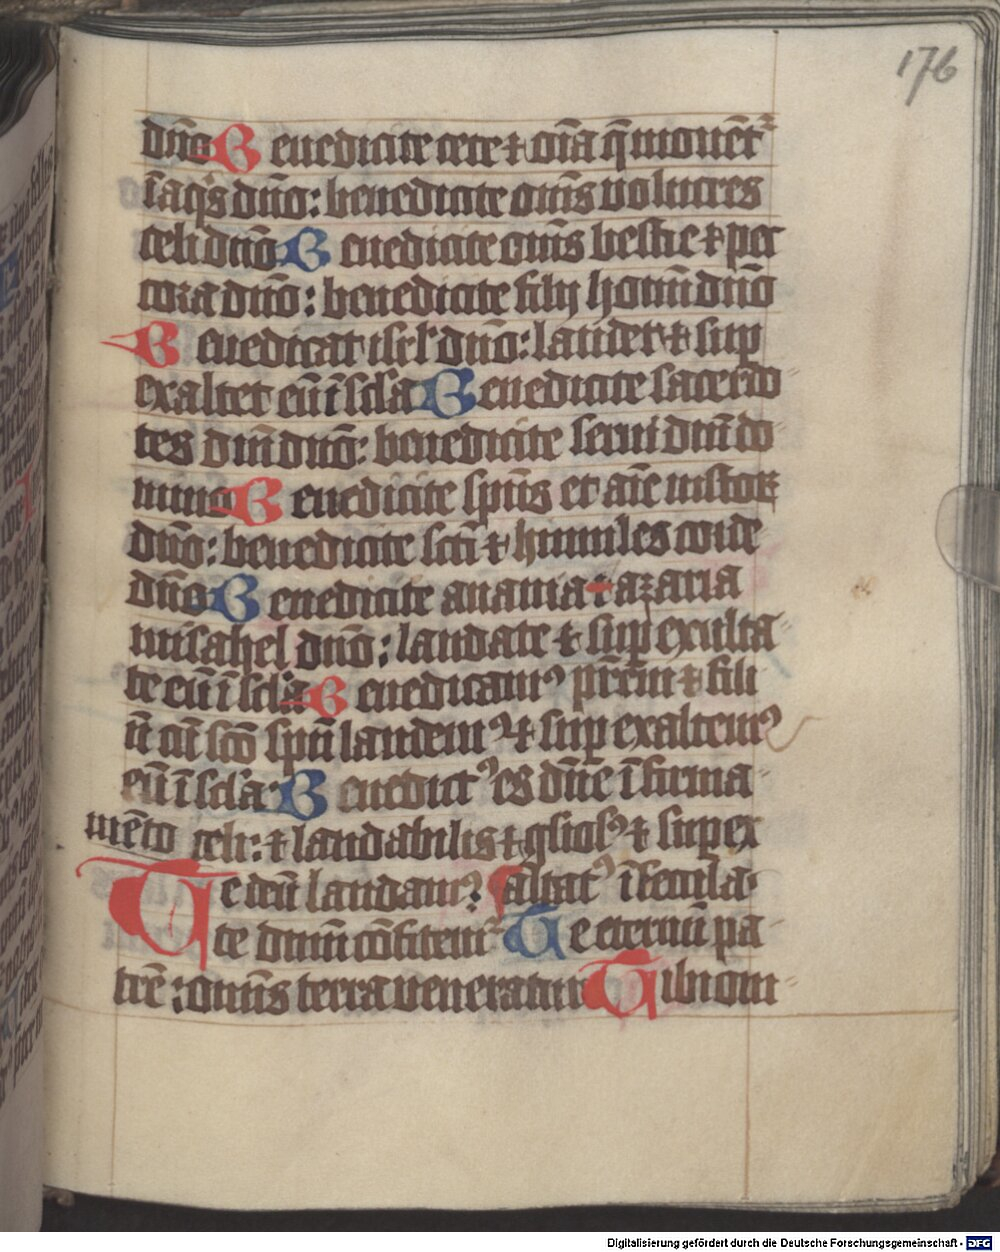 176
dn̄o Benedicite cete ⁊ om̄a q̄ mouēt᷑
ī aq̄s dn̄o: benedicite om̄s volucres
celi dn̄o Benedicite om̄s bestie ⁊ pec
cora dn̄o: benedicite filij homīn dn̄o
Benedicat isrl' dn̄o: laudet ⁊ sup
exaltet eū ī scl'a Benedicite sacerdo
tes dn̄i dn̄o: benedicite serui dn̄i do
mino Benedicite spūs et aīe iustoꝝ
dn̄o: benedicite scī ⁊ humiles corde
dn̄o Benedicite anania ⁊ azaria
misahel dn̄o: laudate ⁊ suꝑ exulta
te eū ī scl'a Benedicamꝰ pr̄em ⁊ fili
ū cū scō spū laudemꝰ ⁊ suꝑ exaltemꝰ
eū ī scl'a Benedictꝰ es dn̄e ī firma
mēto celi: ⁊ laudabilis ⁊ gl'iosꝰ ⁊ sup ex
Te deū laudamꝰ: altatꝰ ī secula
te dn̄m cōfitem᷑ Te eternū pa
trē: omīs terra veneratur Tibi om
Digitalisierung gefördert durch die Deutsche Forschungsgemeinschaft - DFG